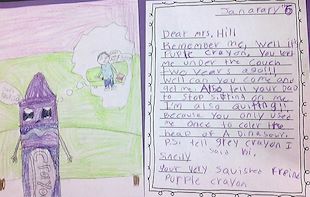 Janarary 6
Dear Mrs. Hill
Remember me, Well it's
Purple Crayon, You left
me under the couch
two years ago!!!
Well can you come and
get me. Also tell your Dad
to stop sitting on me.
I'm also quitting!
because you only used
me once to color the
head of A Dinasour.
P.S. tell grey crayon I
said hi.
Your very squished
Purple crayon